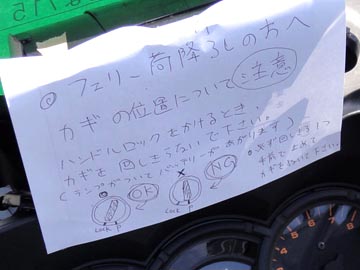 フェリー荷降ろしの方へ
カギの位置について 注意
ハンドルロックをかけるとき、
カギを回しきらないで下さい。
(ランプがついてバッテリーがあがります)
OK
NG
Lock P
Lock P
必ず回しきる1つ
手前で止めて
カギをぬいて下さい。